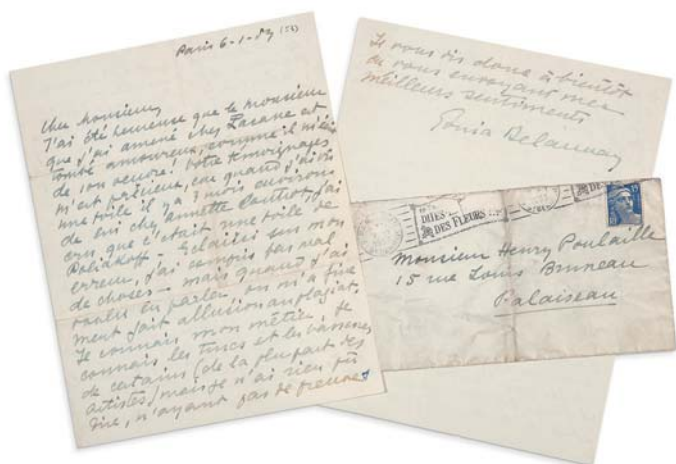 Paris 6-1-
Cher Monsieur,
J'ai été heureuse que le monsieur
que j'ai amené chez est
tombé amoureux, comme il m'écrit
de son oeuvre! Votre témoignage
m'est précieux, car quand j'ai vu
une toile il y a 3 mois environ
de lui chez annette j'ai
cru que c'était une toile de
Poliakoff - Eclairci sur mon
erreur, j'ai compris pas mal
de choses - mais quand j'ai
voulu en parler, on m'a
ment fait allusion au plagiat.
Je connais mon métier, je
connais les trucs et les bassesses
de certains (de la plupart des
artistes) mais je n'ai rien pu
dire, n'ayant pas de preuves
Je vous dis donc à bientôt
en vous envoyant mes
meilleurs sentiments
Sonia Delaunay
DITES-
DES FLEURS
DE
15
Monsieur Henry Poulaille
15 rue Louis Bruneau
Palaiseau